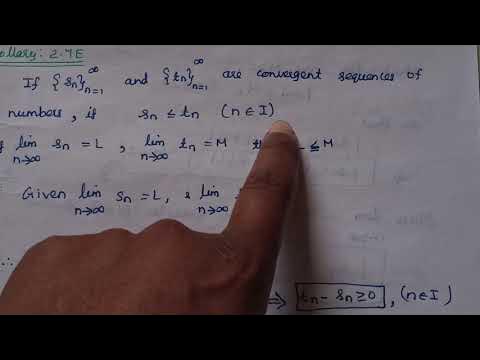 ollary: 2.7E
If {sₙ}∞ₙ₌₁ and {tₙ}∞ₙ₌₁ are convergent sequences of
numbers, if sₙ ≤ tₙ (n ∈ I)
lim n→∞ sₙ = L, lim n→∞ tₙ = M L ≤ M
Given lim n→∞ sₙ = L, & lim n→∞
∴
⇒ tₙ - sₙ ≥ 0, (n ∈ I)